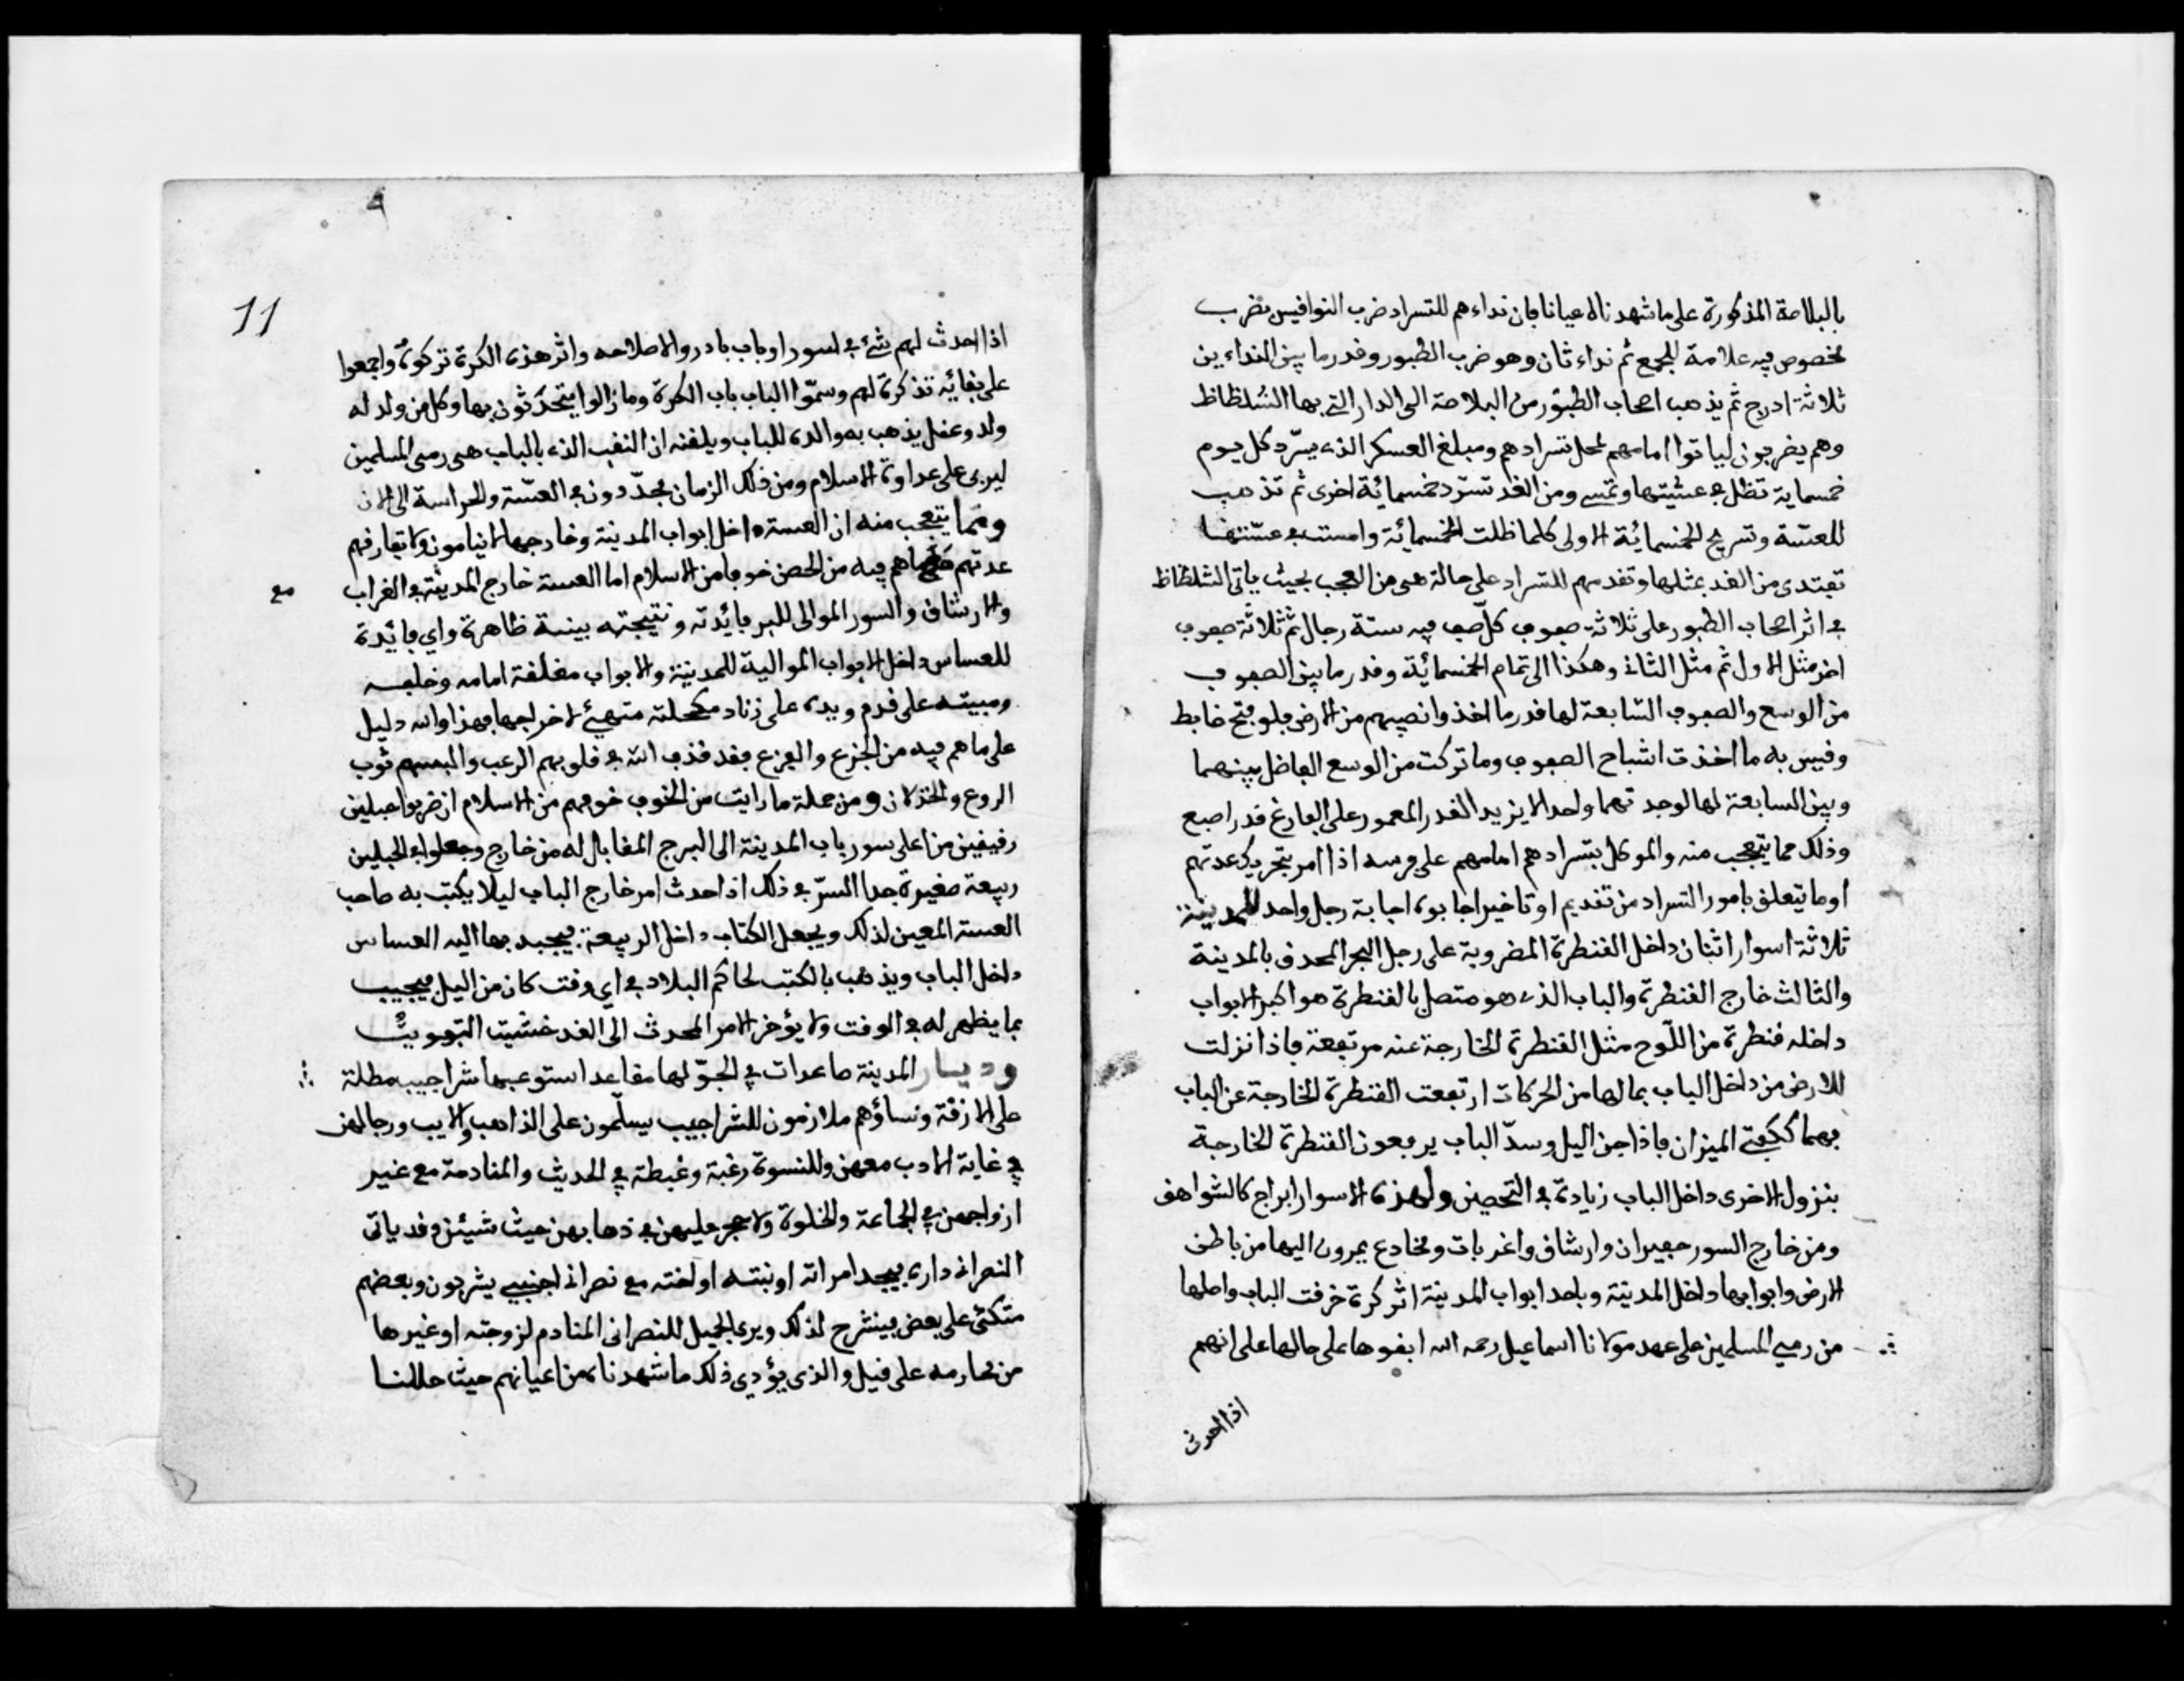 بالبلاصة المذكورة على ما شهدناه عيانا بان نداءهم للتسراد ضرب النوافيس بضرب
مخصوص فيه علامة للجمع ثم نداء ثان وهو ضرب الطبور وقدر ما بين النداءين
ثلاثة ادرج ثم يذهب اصحاب الطبور من البلاصة الى الدار التي بها الشلظاظ
وهم يضربون لياتوا امامهم لمحل تسرادهم ومبلغ العسكر الذي يسرّد كل يوم
خمسماية تظل في عشيتها وتمسي ومن الغد تسرّد خمسمائة اخرى ثم تذهب
للعسّة وتسرح الخمسمائة الاولى كلما ظلت الخمسمائة وامست في عسّتها
تفتدى من الغد بمثلها وتقدمهم للتسراد على حالة هي من العجب بحيث ياتى الشلظاظ
في اثر اصحاب الطبور على ثلاثة صفوف كل صف فيه ستة رجال ثم ثلاثة صفوف
اخر مثل الاول ثم مثل الثاني وهكذا الى تمام الخمسمائة وقدر ما بين الصفوف
من الوسع والصفوف التابعة لها قدر ما اخذوا نصيبهم من الارض فلو فتح ضابط
وقيس به ما اخذت اشباح الصفوف وما تركت من الوسع الفاضل بينهما
وبين السابعة لها لوجدتهما واحدا لا يزيد القدر المعمور على الفارغ قدر اصبع
وذلك مما يتعجب منه والموكل بتسرادهم امامهم على فرسه اذا امر بتحريك عدتهم
او ما يتعلق بامور التسراد من تقديم او تاخير اجابوه اجابة رجل واحد للمدينة
ثلاثة اسوار اثنان داخل القنطرة المضروبة على رجل البحر المحدق بالمدينة
والثالث خارج القنطرة والباب الذي هو متصل بالقنطرة هو اكبر الابواب
داخله قنطرة من اللّوح مثل القنطرة الخارجة عنه مرتفعة فاذا نزلت
للارض من داخل الباب بمالها من الحركات ارتفعت القنطرة الخارجة عن الباب
فهما ككفتي الميزان فاذا جن اليل وسدّ الباب يرفعون القنطرة الخارجة
بنزول الاخرى داخل الباب زيادة في التحصين ولهذه الاسوار ابراج كالشواهق
ومن خارج السور حفيران وارشاق واغربات ومخادع يمرون اليها من باطن
الارض وابوابها داخل المدينة وباحد ابواب المدينة اثر كرة خرقت الباب واصلها
من رمي المسلمين على عهد مولانا اسماعيل رحمه الله ابقوها على حالها على انهم
اذا احدث
11
اذا احدث لهم شيء في اسور او باب بادروا لاصلاحه واثر هذه الكرة تركوه واجمعوا
على بقائه تذكرة لهم وسمّوا الباب باب الكرة وما زالوا يتحدّثون بها وكل من ولد له
ولد وعقل يذهب به والده للباب ويلقنه ان النقب الذي بالباب هي رمى المسلمين
ليربى على عداوة الاسلام ومن ذلك الزمان يجدّدون في العسّة والحراسة الى الان
ومما يتعجب منه ان العسة داخل ابواب المدينة وخارجها لا ينامون ولا تفارقهم
عدتهم ما هم فيه من الحصن خوفا من الاسلام اما العسة خارج المدينة في الغراب
مع
والارشاق والسور الموالى للبر فائدته ونتيجته بينة ظاهرة واي فائدة
للعساس داخل الابواب الموالية للمدينة والابواب مغلقة امامه وخلفه
ومبيته على قدم ويده على زناد مكحلته متهيئ لاخراجها فهذا والله دليل
على ما هم فيه من الجزع والفزع فقد قذف الله في قلوبهم الرعب والبسهم ثوب
الروع والخذلان ومن جملة ما رايت من الخوف خوفهم من الاسلام ان ضربوا حبلين
رقيقين من اعلى سور باب المدينة الى البرج المقابل له من خارج وجعلوا في الحبلين
ربيعة صغيرة جدا السرّ في ذلك اذا حدث امر خارج الباب ليلا يكتب به صاحب
العسة المعين لذلك ويجعل الكتاب داخل الربيعة فيجبد بها اليه العساس
داخل الباب ويذهب بالكتب لحاكم البلاد في اي وقت كان من اليل فيجيب
بما يظهر له في الوقت ولا يؤخر الامر المحدث الى الغد خشيت التفويت
وديار المدينة صاعدات في الجوّ لها مقاعد استوعبها شراجيب مطلة
على الازقة ونساؤهم ملازمون للشراجيب يسلّمون على الذاهب والايب ورجالهن
في غاية الادب معهن وللنسوة رغبة وغبطة في الحديث والمنادمة مع غير
ازواجهن في الجماعة والخلوة ولا حجر عليهن في ذهابهن حيث شيئن وقد ياتى
النصراني داره فيجد امراته او بنته او اخته مع نصراني اجنبي يشربون وبعضهم
متكئ على بعض فينشرح لذلك ويرى الجميل للنصراني المنادم لزوجته او غيرها
من محارمه على قيل والذى يؤدي ذلك ما شهدناه من اعيانهم حيث حللنا